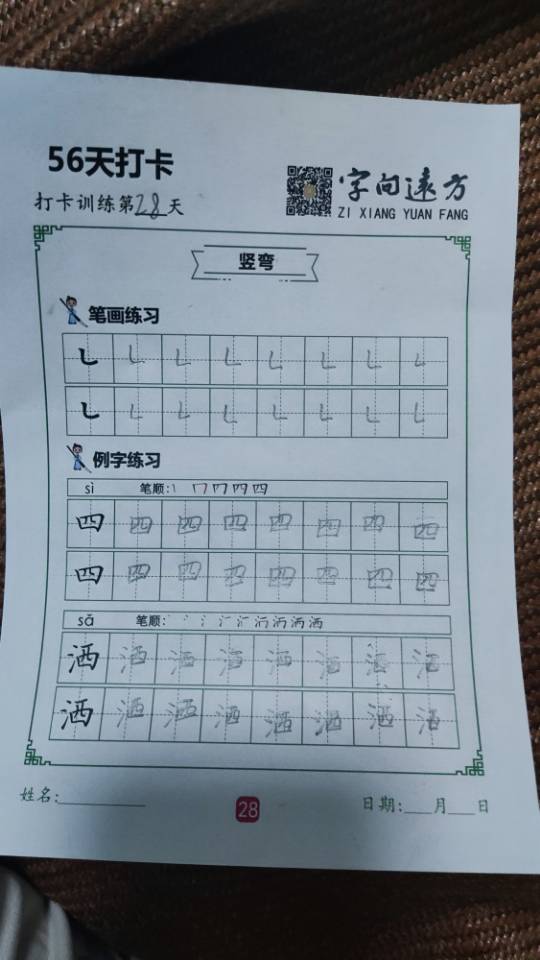 56天打卡
打卡训练第28天
字向远方
ZI XIANG YUAN FANG
竖弯
笔画练习
㇄ ㇄ ㇄ ㇄ ㇄ ㇄ ㇄ ㇄
㇄ ㇄ ㇄ ㇄ ㇄ ㇄ ㇄ ㇄
例字练习
sì 笔顺:
四 四 四 四 四 四 四 四
四 四 四 四 四 四 四 四
sǎ 笔顺:
洒 洒 洒 洒 洒 洒 洒 洒
洒 洒 洒 洒 洒 洒 洒 洒
姓名:
28
日期: 月 日